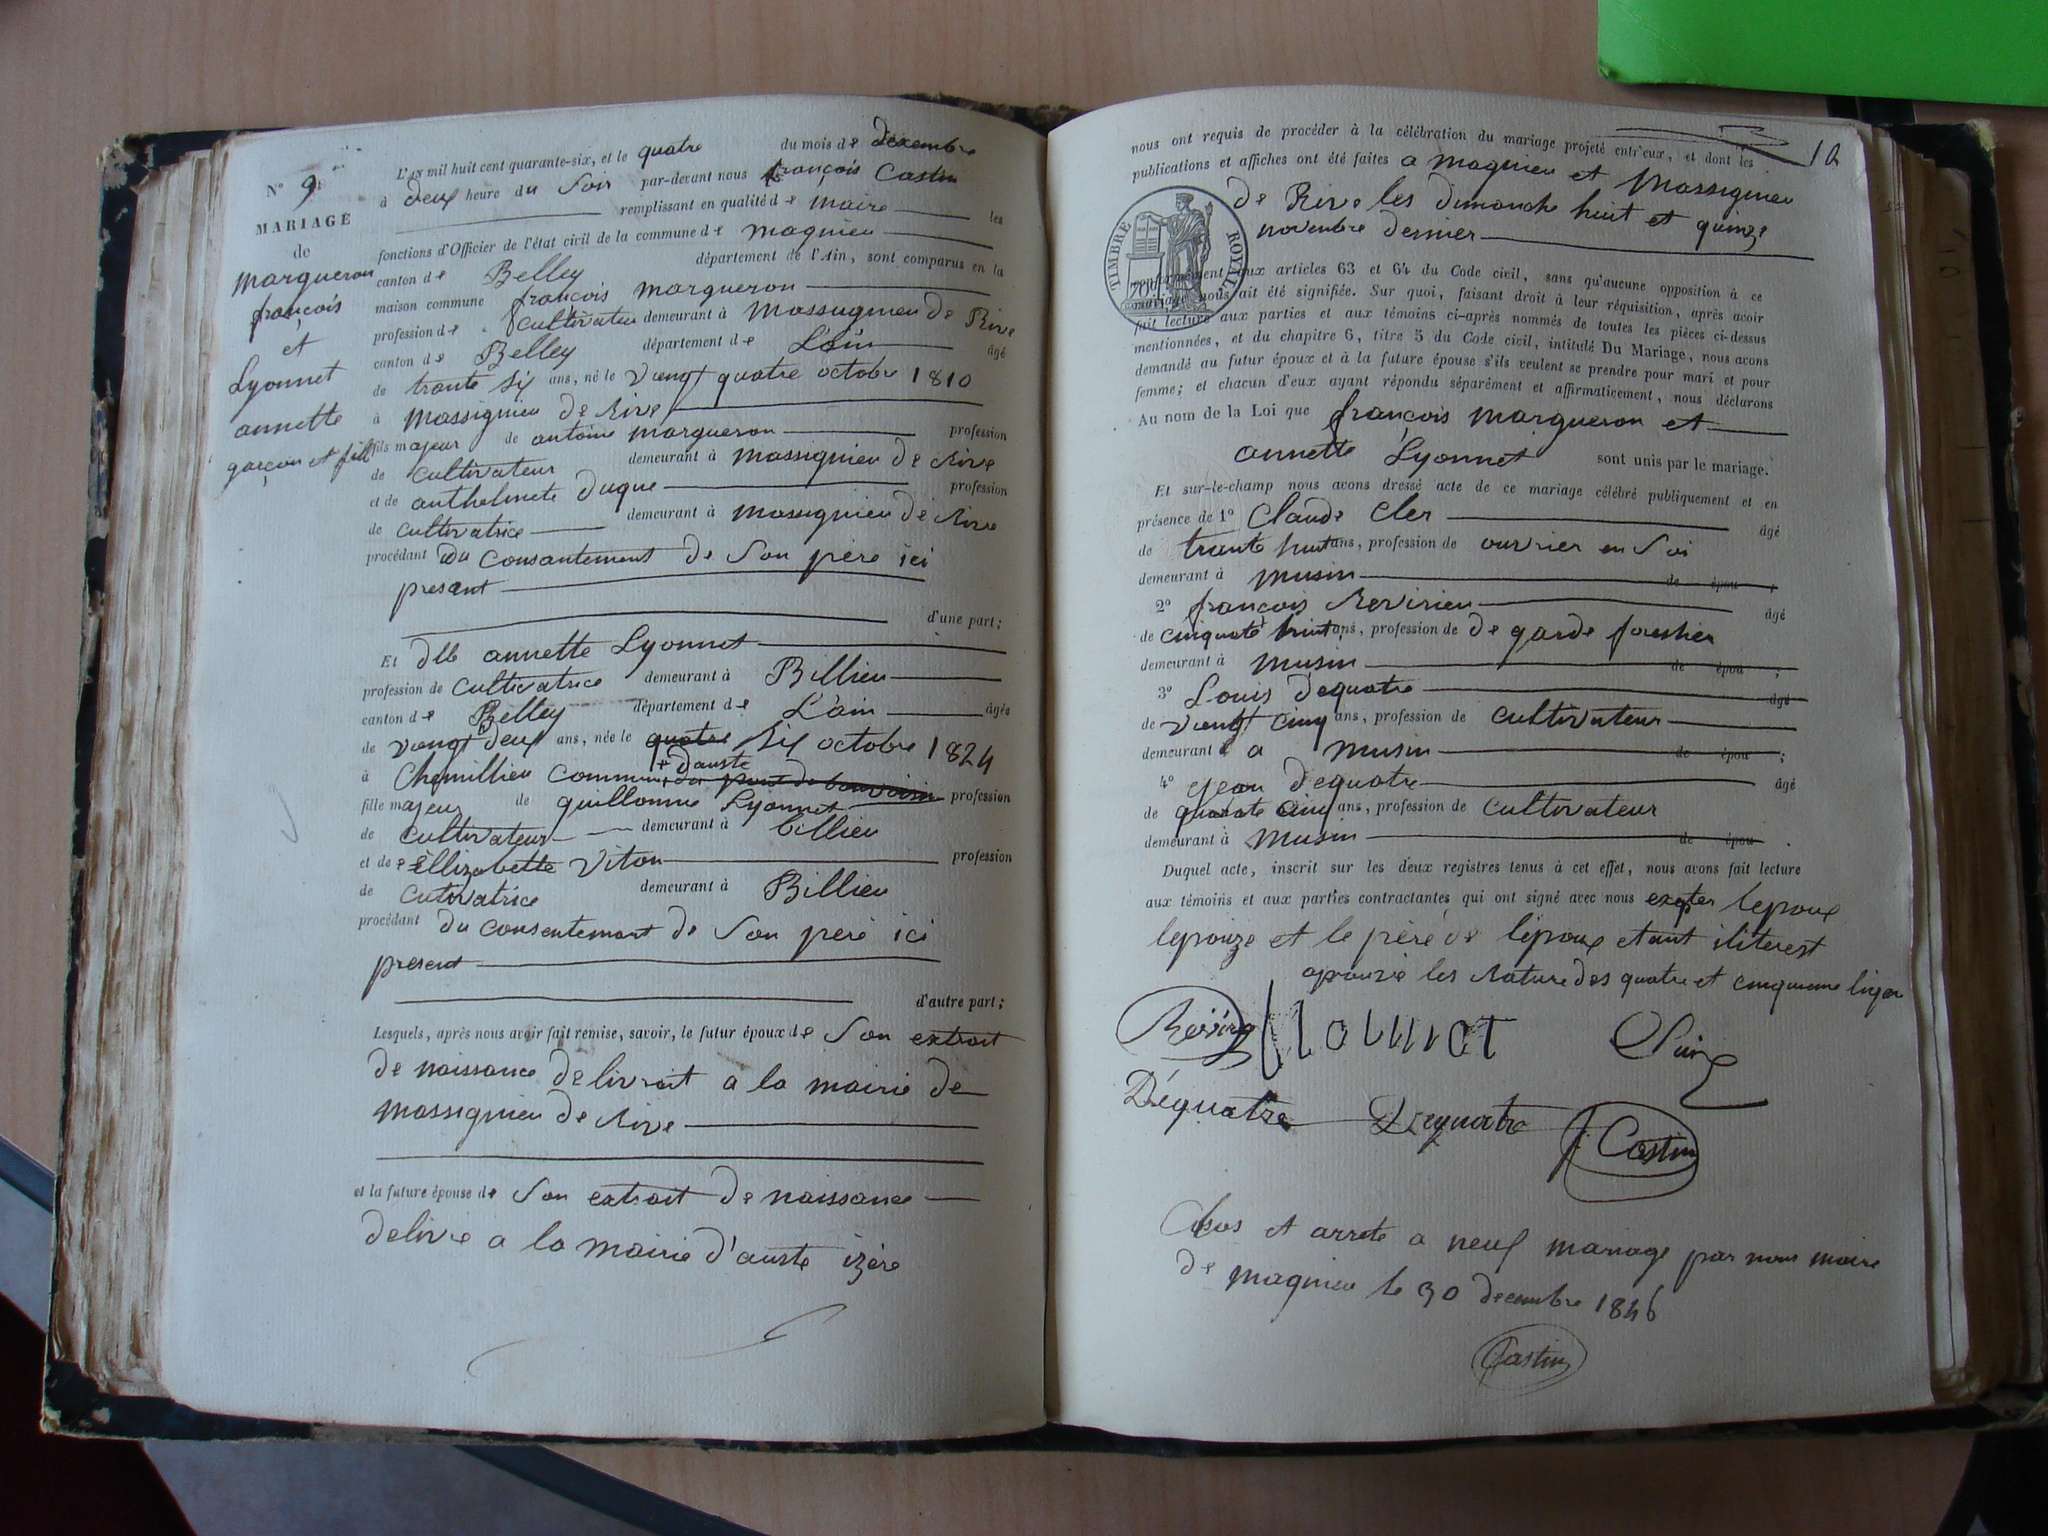 N° 9
MARIAGE
de
margueron
françois
et
Lyonnet
annette
garçon et fille
L'an mil huit cent quarante-six, et le quatre du mois de dexembre
à deux heure du Soir par-devant nous françois Castin
remplissant en qualité de maire les
fonctions d'Officier de l'état civil de la commune de magnieu
canton de Belley département de l'Ain, sont comparus en la
maison commune françois margueron
profession de cultivateur demeurant à massignieu de Rive
canton de Belley département de L'ain âgé
de trante Six ans, né le vengt quatre octobre 1810
à massignieu de Rive
fils majeur de antoine margueron profession
de cultivateur demeurant à massignieu de Rive
et de anthelmete duque profession
de cultivatrice demeurant à massignieu de Rive
procédant du consantement de Son père ici
present
d'une part;
Et dlle annette Lyonnet
profession de cultivatrice demeurant à Billieu
canton de Belley département de L'ain âgée
de vengt deux ans, née le quatre Six octobre 1824
à Chemillieu commune d'auste
fille majeur de guillomme Lyonnet profession
de cultivateur demeurant à billieu
et de Ellizabette Viton profession
de cutivatrice demeurant à Billieu
procédant du consentement de Son père ici
present
d'autre part;
Lesquels, après nous avoir fait remise, savoir, le futur époux de Son extrait
de naissance delivrait a la mairie de
massignieu de Rive
et la future épouse de Son extrait de naissance
delivre a la mairie d'auste izère
10
nous ont requis de procéder à la célébration du mariage projeté entr'eux, et dont les
publications et affiches ont été faites a magnieu et Massignieu
de Rive les dimanche huit et quinze
novembre dernier
TIMBRE ROYAL
conformément aux articles 63 et 64 du Code civil, sans qu'aucune opposition à ce
mariage nous ait été signifiée. Sur quoi, faisant droit à leur réquisition, après avoir
fait lecture aux parties et aux témoins ci-après nommés de toutes les pièces ci-dessus
mentionnées, et du chapitre 6, titre 5 du Code civil, intitulé Du Mariage, nous avons
demandé au futur époux et à la future épouse s'ils veulent se prendre pour mari et pour
femme; et chacun d'eux ayant répondu séparément et affirmativement, nous déclarons
Au nom de la Loi que françois margueron et
annette Lyonnet sont unis par le mariage.
Et sur-le-champ nous avons dressé acte de ce mariage célébré publiquement et en
présence de 1° Claude Cler âgé
de trante huit ans, profession de ouvrier en Soi
demeurant à musin de épou ;
2° françois Revirieu âgé
de cinquate huit ans, profession de de garde forestier
demeurant à musin de épou ;
3° Louis dequatre âgé
de vengt cinq ans, profession de cultivateur
demeurant à a musin de épou ;
4° Jean dequatre âgé
de quarate cinq ans, profession de cultivateur
demeurant à musin de épou .
Duquel acte, inscrit sur les deux registres tenus à cet effet, nous avons fait lecture
aux témoins et aux parties contractantes qui ont signé avec nous lepoux
lepouze et le père de l'époux etant iliterest
les Rature des quatre et cinquieme ligne
Déquatre Dequatre Castin
Clos et arrete a neuf mariage par nous maire
de magnieu le 30 decembre 1846
Castin